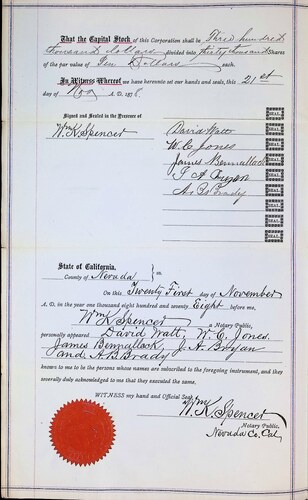 That the Capital Stock of this Corporation shall be Three hundred
thousand dollars divided into thirty thousand Shares
of the par value of Ten Dollars each.
In Witness Whereof we have hereunto set our hands and seals, this 21st
day of Nov A. D. 1878.
Signed and Sealed in the Presence of
Wm K Spencer
David Watt SEAL.
W. C. Jones SEAL.
James Bennallack SEAL.
J A Bryan SEAL.
A. B. Brady SEAL.
SEAL.
SEAL.
SEAL.
SEAL.
SEAL.
State of California.
County of Nevada } ss
On this Twenty First day of November
A. D. in the year one thousand eight hundred and seventy Eight before me,
Wm K Spencer a Notary Public,
personally appeared David Watt, W. C. Jones.
James Bennallack J. A. Bryan
and A. B. Brady
known to me to be the persons whose names are subscribed to the foregoing instrument, and they
severally duly acknowledged to me that they executed the same.
WITNESS my hand and Official Seal.
Wm K. Spencer
Notary Public,
Nevada Co, Cal